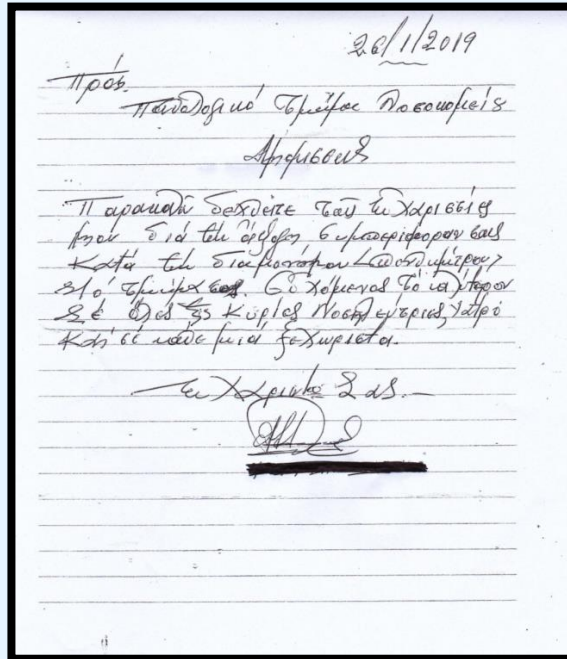 26/1/2019
Πρός.
Παθολογικό Τμήμα Νοσοκομείου
Παρακαλώ δεχθείτε τας ευχαριστίες
μου διά την άψογη συμπεριφοράν σας
κατά την διαμονήν μου
στό τμήμα σας. Ευχόμενος το καλύτερον
σέ όλες τις κυρίες Νοσηλεύτριες, Ιατρό
και σέ κάθε μιά ξεχωριστά.
Ευχαριστώ Σας.